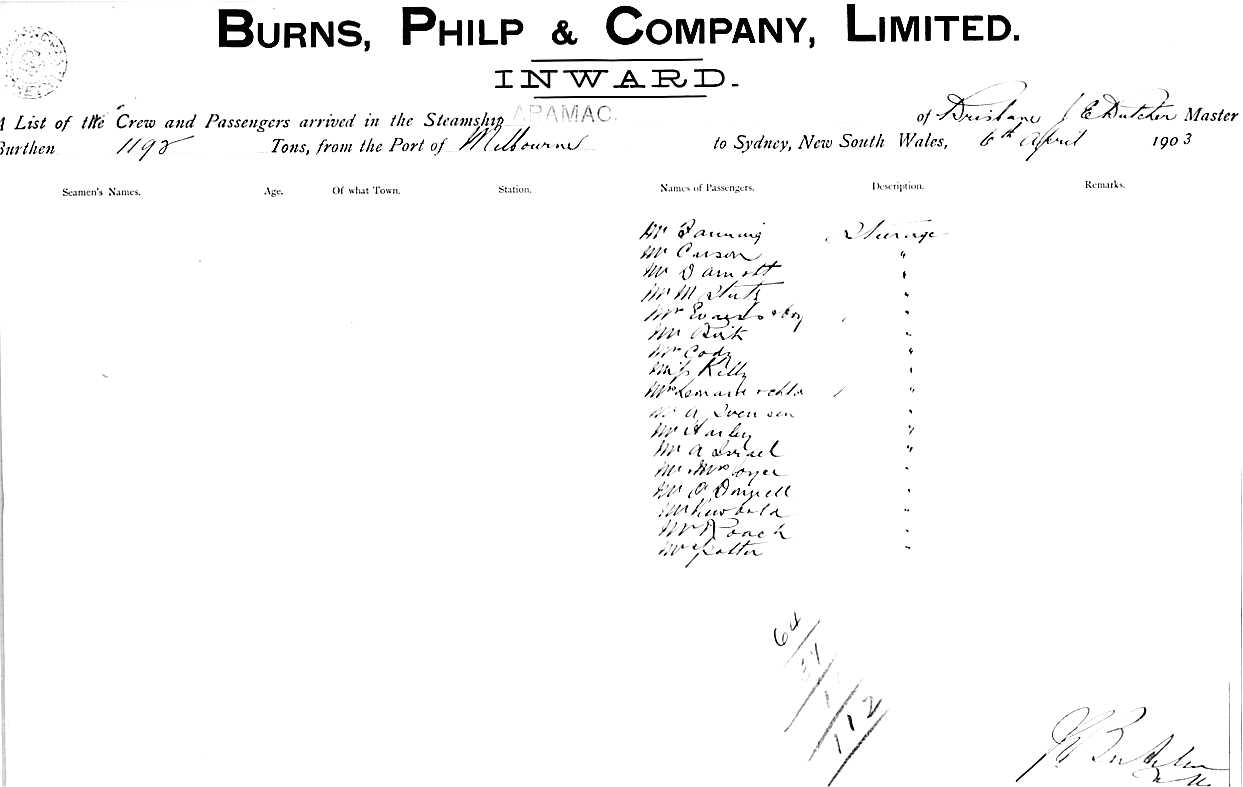 BURNS, PHILP & COMPANY, LIMITED.
INWARD.
A List of the Crew and Passengers arrived in the Steamship ARAMAC. of Brisbane J E Butcher Master
Burthen 1192 Tons, from the Port of Melbourne to Sydney, New South Wales, 6th April 1903
Seamen's Names. Age. Of what Town. Station. Names of Passengers. Description. Remarks.
Mr Fanning Steerage
Mr Curson "
Mr "
Mr M "
Mr & boy "
Mr "
Mr Cody "
Miss Kelly "
Mrs & child "
Mr A Svensen "
Mr Harley "
Mr A Israel "
Mr & Mrs "
Mr O'Donnell "
Mr "
Mr Roach "
Mr Potter "
64
112